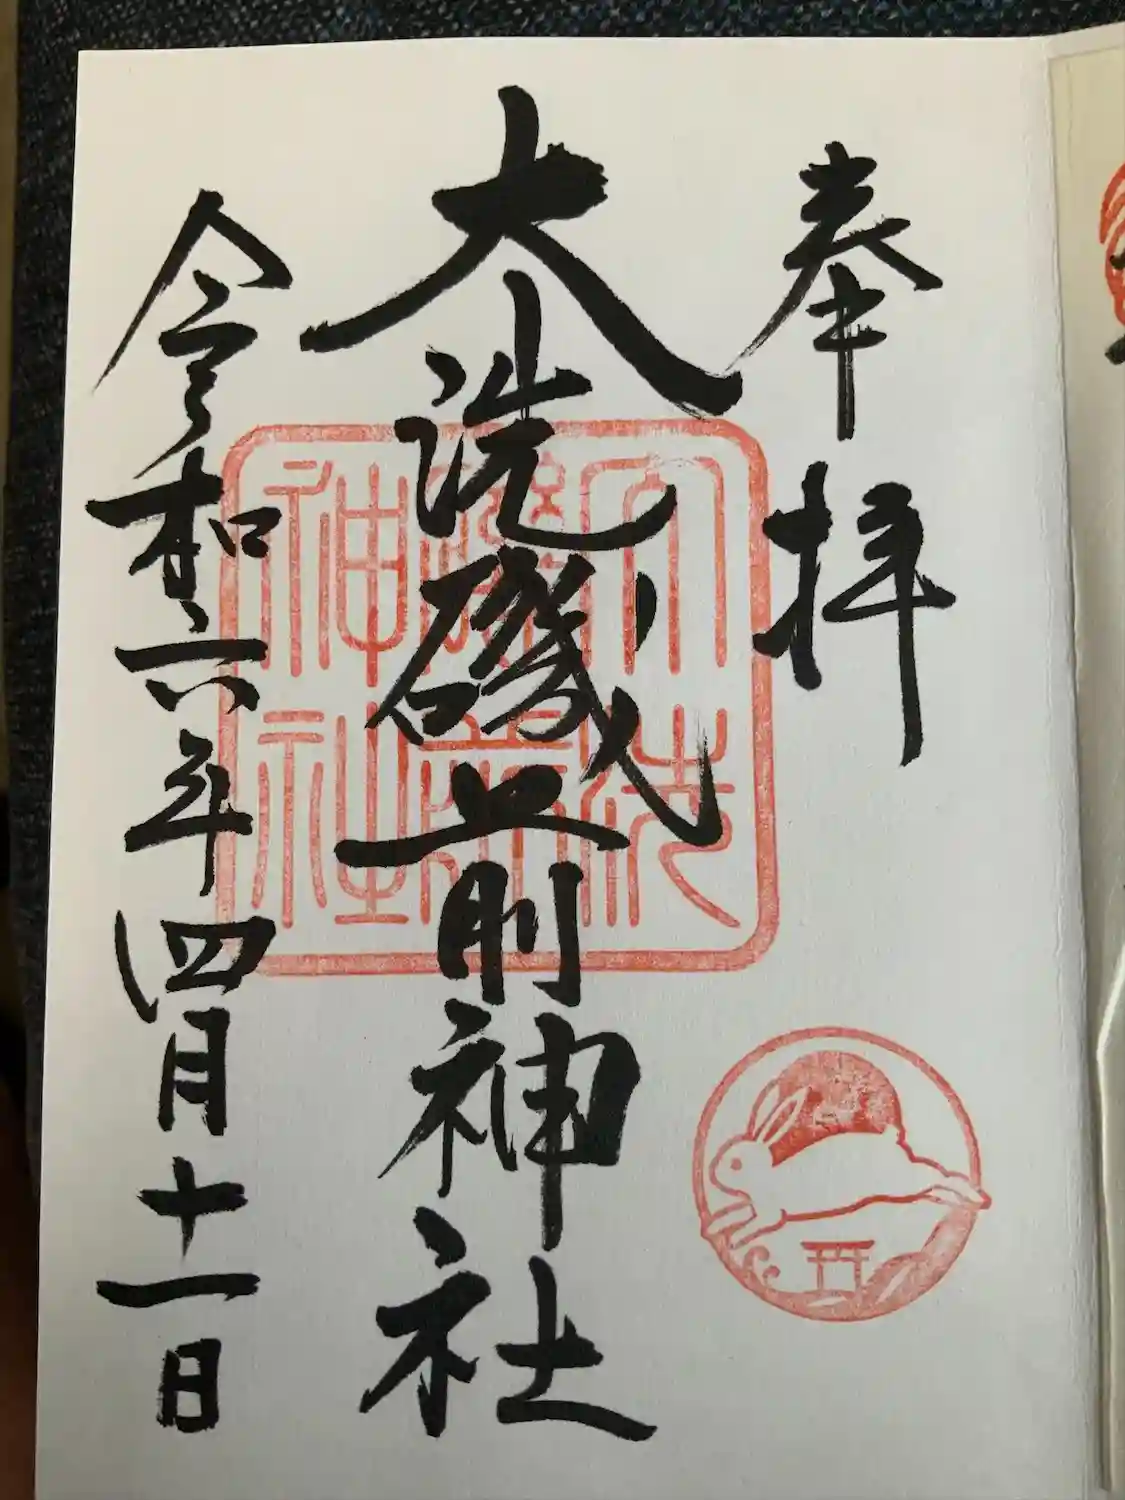 奉拝
大洗磯前神社
令和六年四月十一日
大洗
磯前
神社